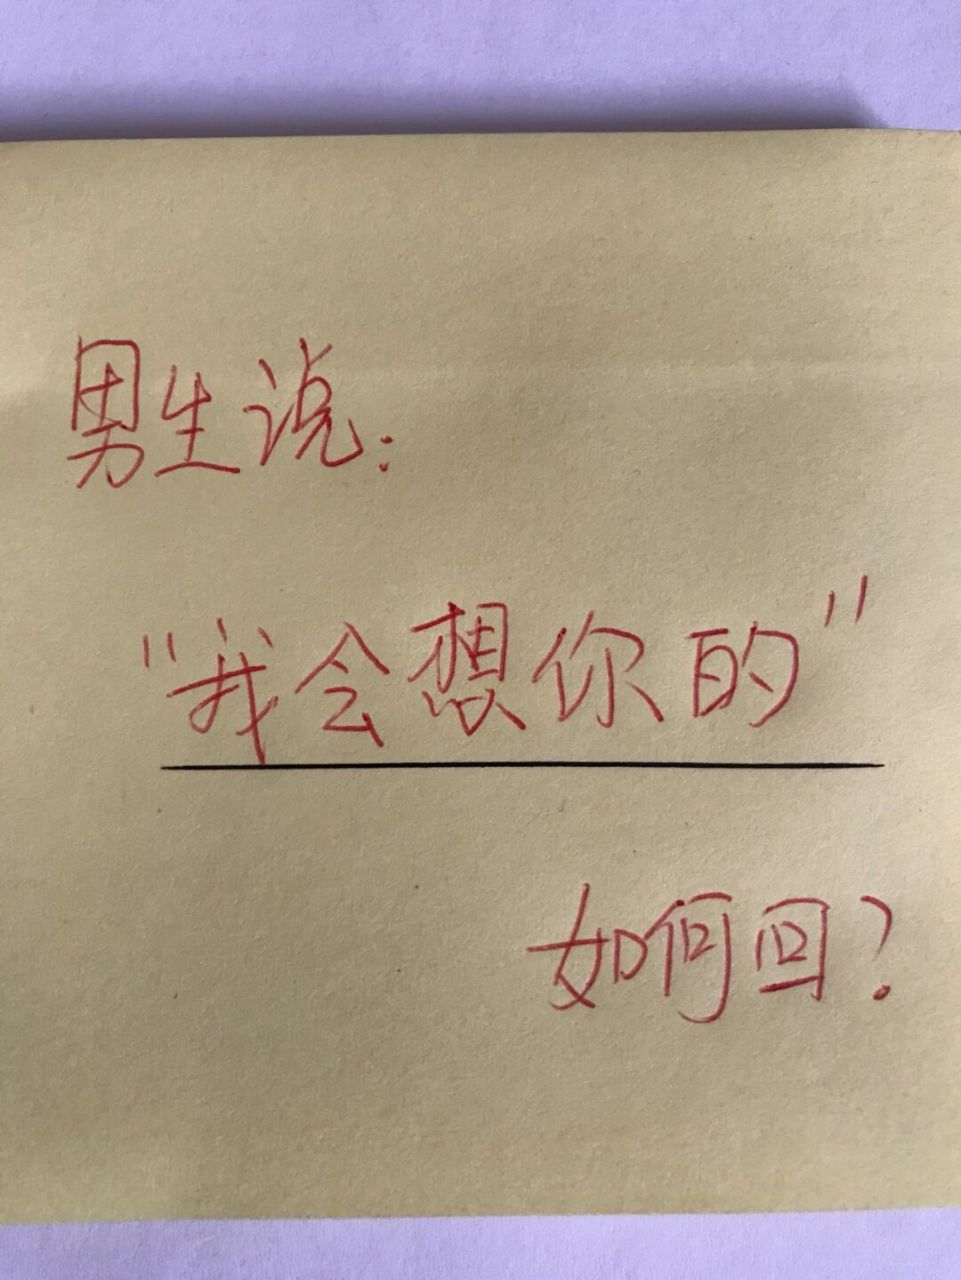 男生说:
"我会想你的"
如何回?